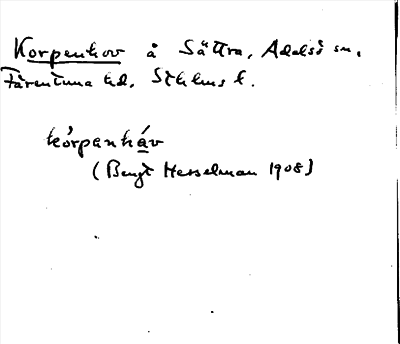 Korpenhov å Sättra, Adelsö sn.
Färentuna hd, Sthlms l.
kórpanháv
(Bengt Hesselman 1908)